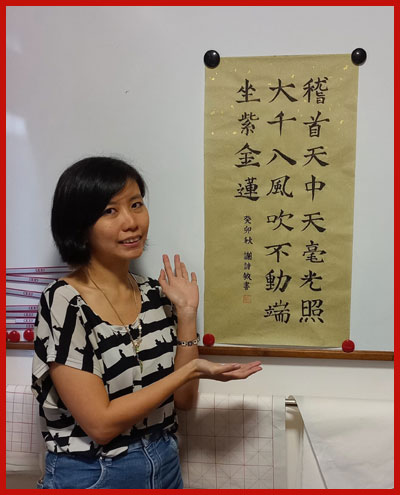 稽首天中天毫光照
大千八風吹不動端
坐紫金蓮
癸卯秋 謝詩敏書